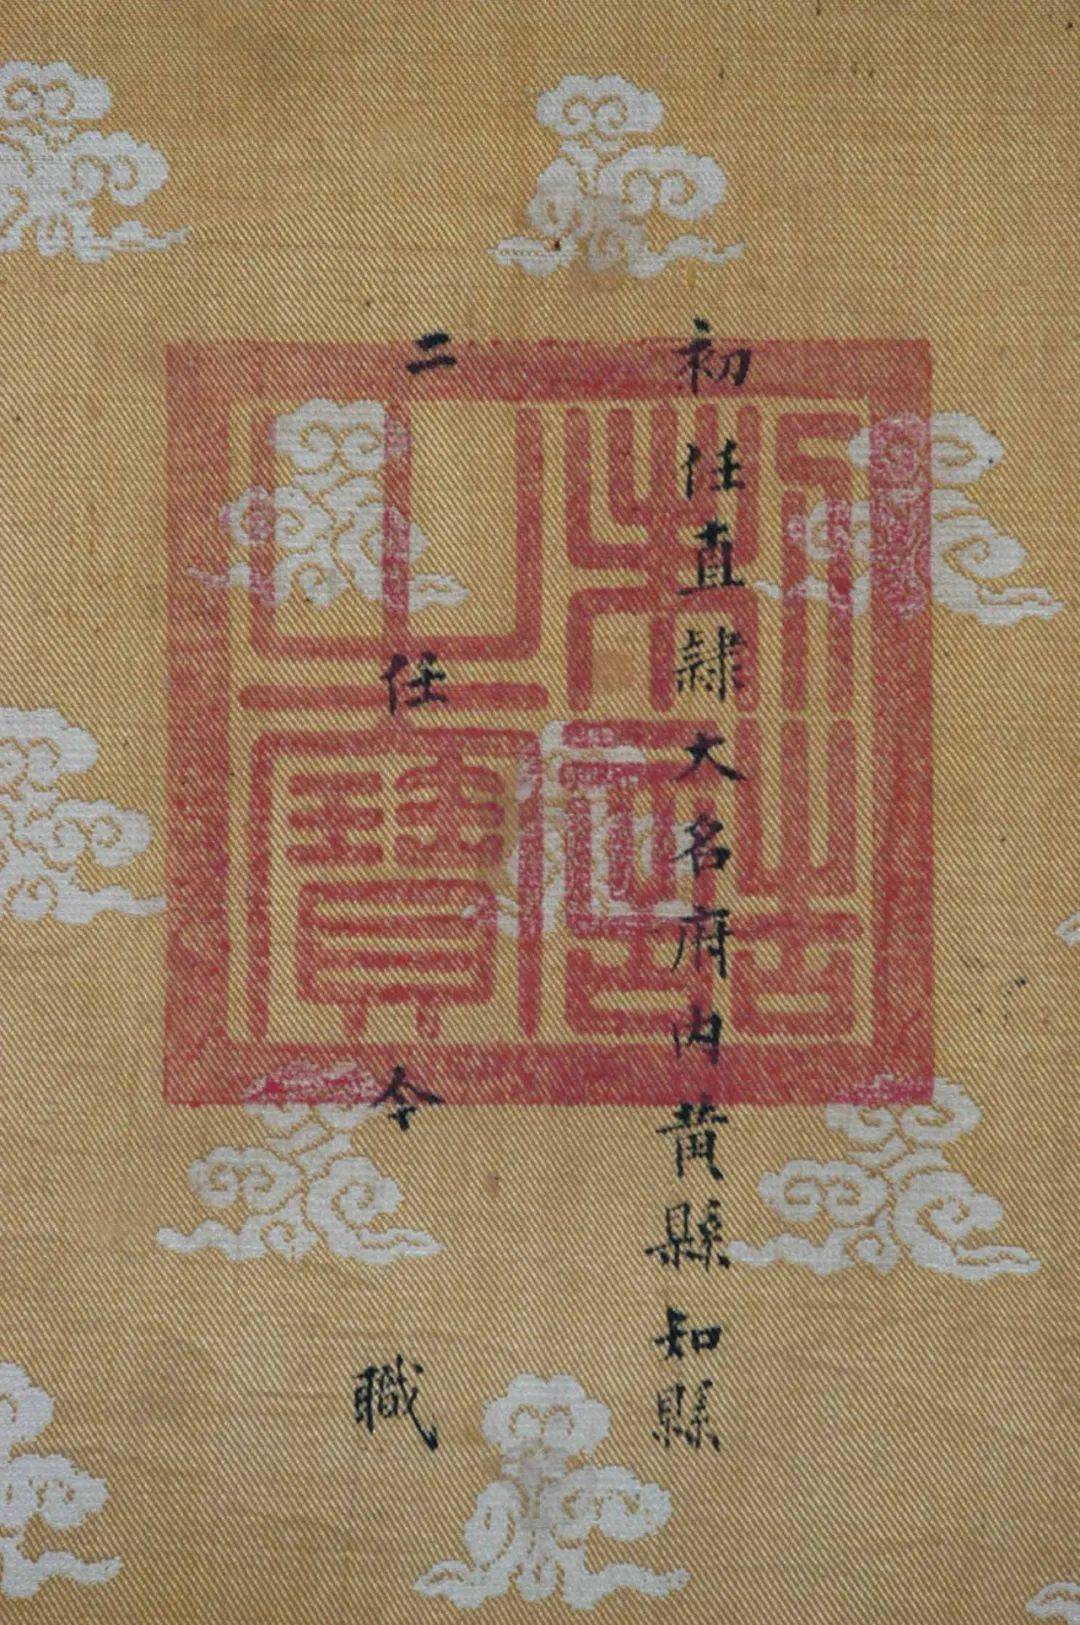 初任直隷大名府內黄縣知縣
二任今職
制誥
之寶